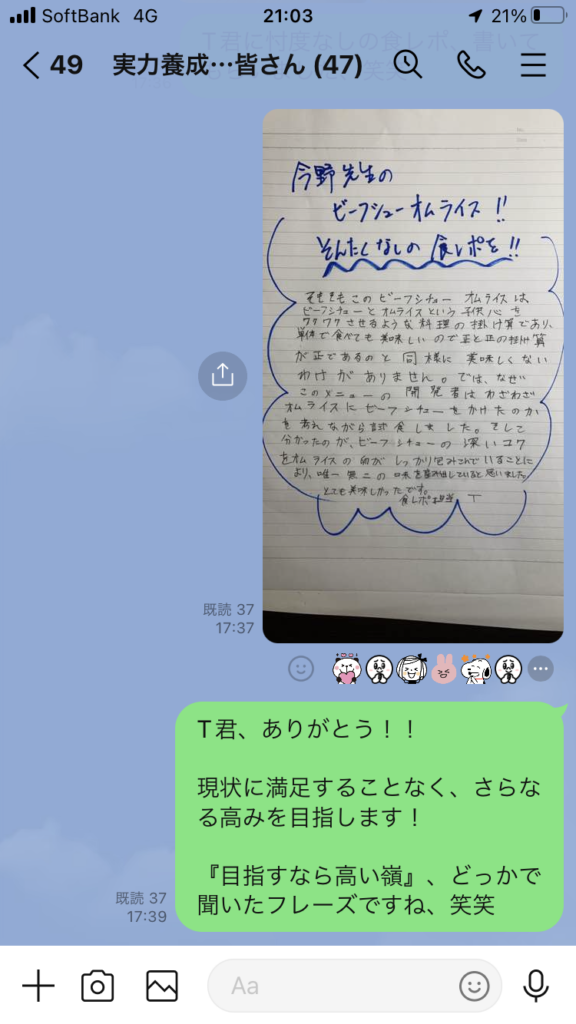 SoftBank 4G
21:03
21%
T君に忖度なしの食レポ、書いて
49
実力養成…皆さん (47)
今野先生の
ビーフシューオムライス!!
そんたくなしの食レポを!!
そもそもこのビーフシチューオムライスは
ビーフシチューとオムライスという子供心を
ワクワクさせるような料理の掛け算であり、
単体で食べても美味しいので正と正の掛け算
が正であるのと同様に美味しくない
わけがありません。では、なぜ
このメニューの開発者はわざわざ
オムライスにビーフシチューをかけたのか
を考えながら試食しました。そして
分かったのが、ビーフシチューの深いコク
をオムライスの卵がしっかり包みこんでいることに
より、唯一無二の味を生み出していると思いました。
とても美味しかったです。
食レポ担当 T
既読 37
17:37
T君、ありがとう!!
現状に満足することなく、さらな
る高みを目指します!
『目指すなら高い嶺』、どっかで
聞いたフレーズですね、笑笑
既読 37
17:39
Aa